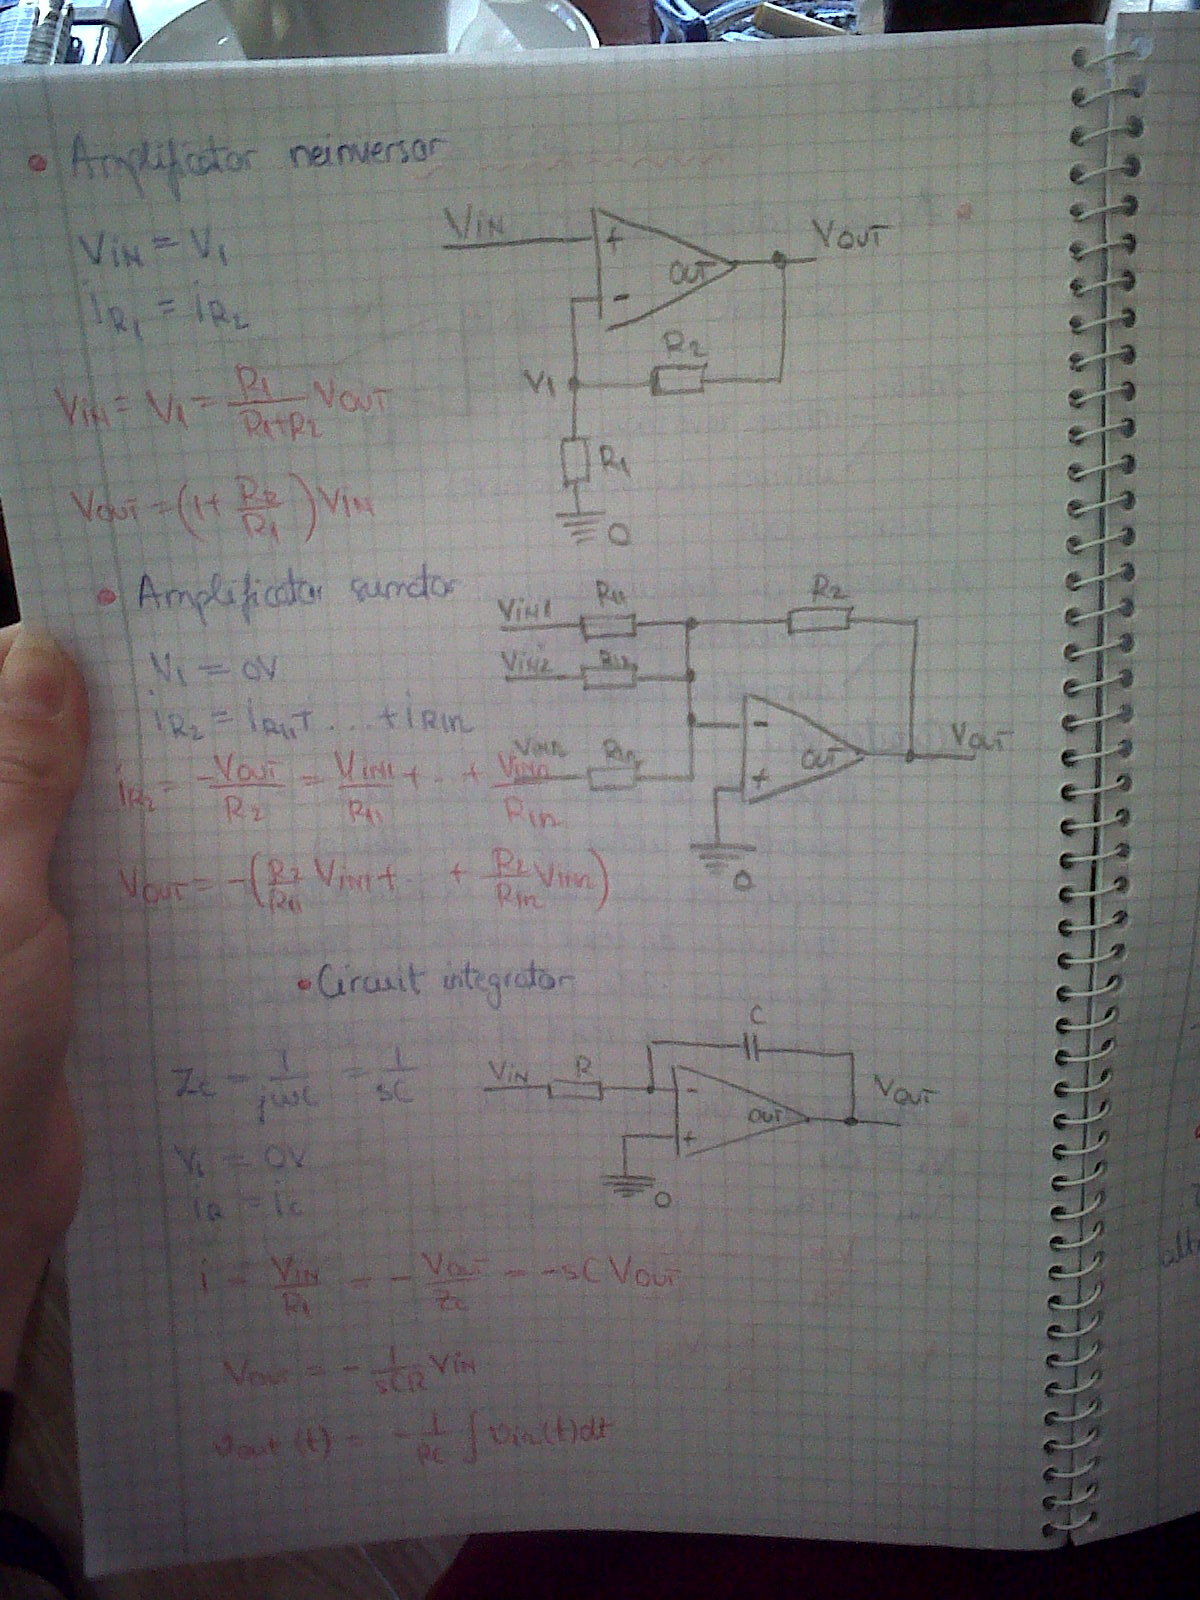 • Amplificator neinversor
VIN = V1
iR1 = iR2
VIN = V1 = R1/(R1+R2) VOUT
VOUT = (1 + R2/R1) VIN
VIN
+
-
OUT
VOUT
R2
V1
R1
0
• Amplificator sumator
V1 = 0V
iR2 = iR11 + ... + iR1n
iR2 = -VOUT/R2 = VIN1/R11 + .. + VINn/R1n
VOUT = -(R2/R11 VIN1 + .. + R2/R1n VINn)
VIN1 R11 R2
VIN2 R12
VINn R1n
-
+
OUT
VOUT
0
• Circuit integrator
ZC = 1/jωC = 1/sC
V1 = 0V
iR = iC
i = VIN/R1 = - VOUT/ZC = -sC VOUT
VOUT = - 1/sCR VIN
vout (t) = - 1/RC ∫ vin(t)dt
C
VIN R
-
+
OUT
VOUT
0